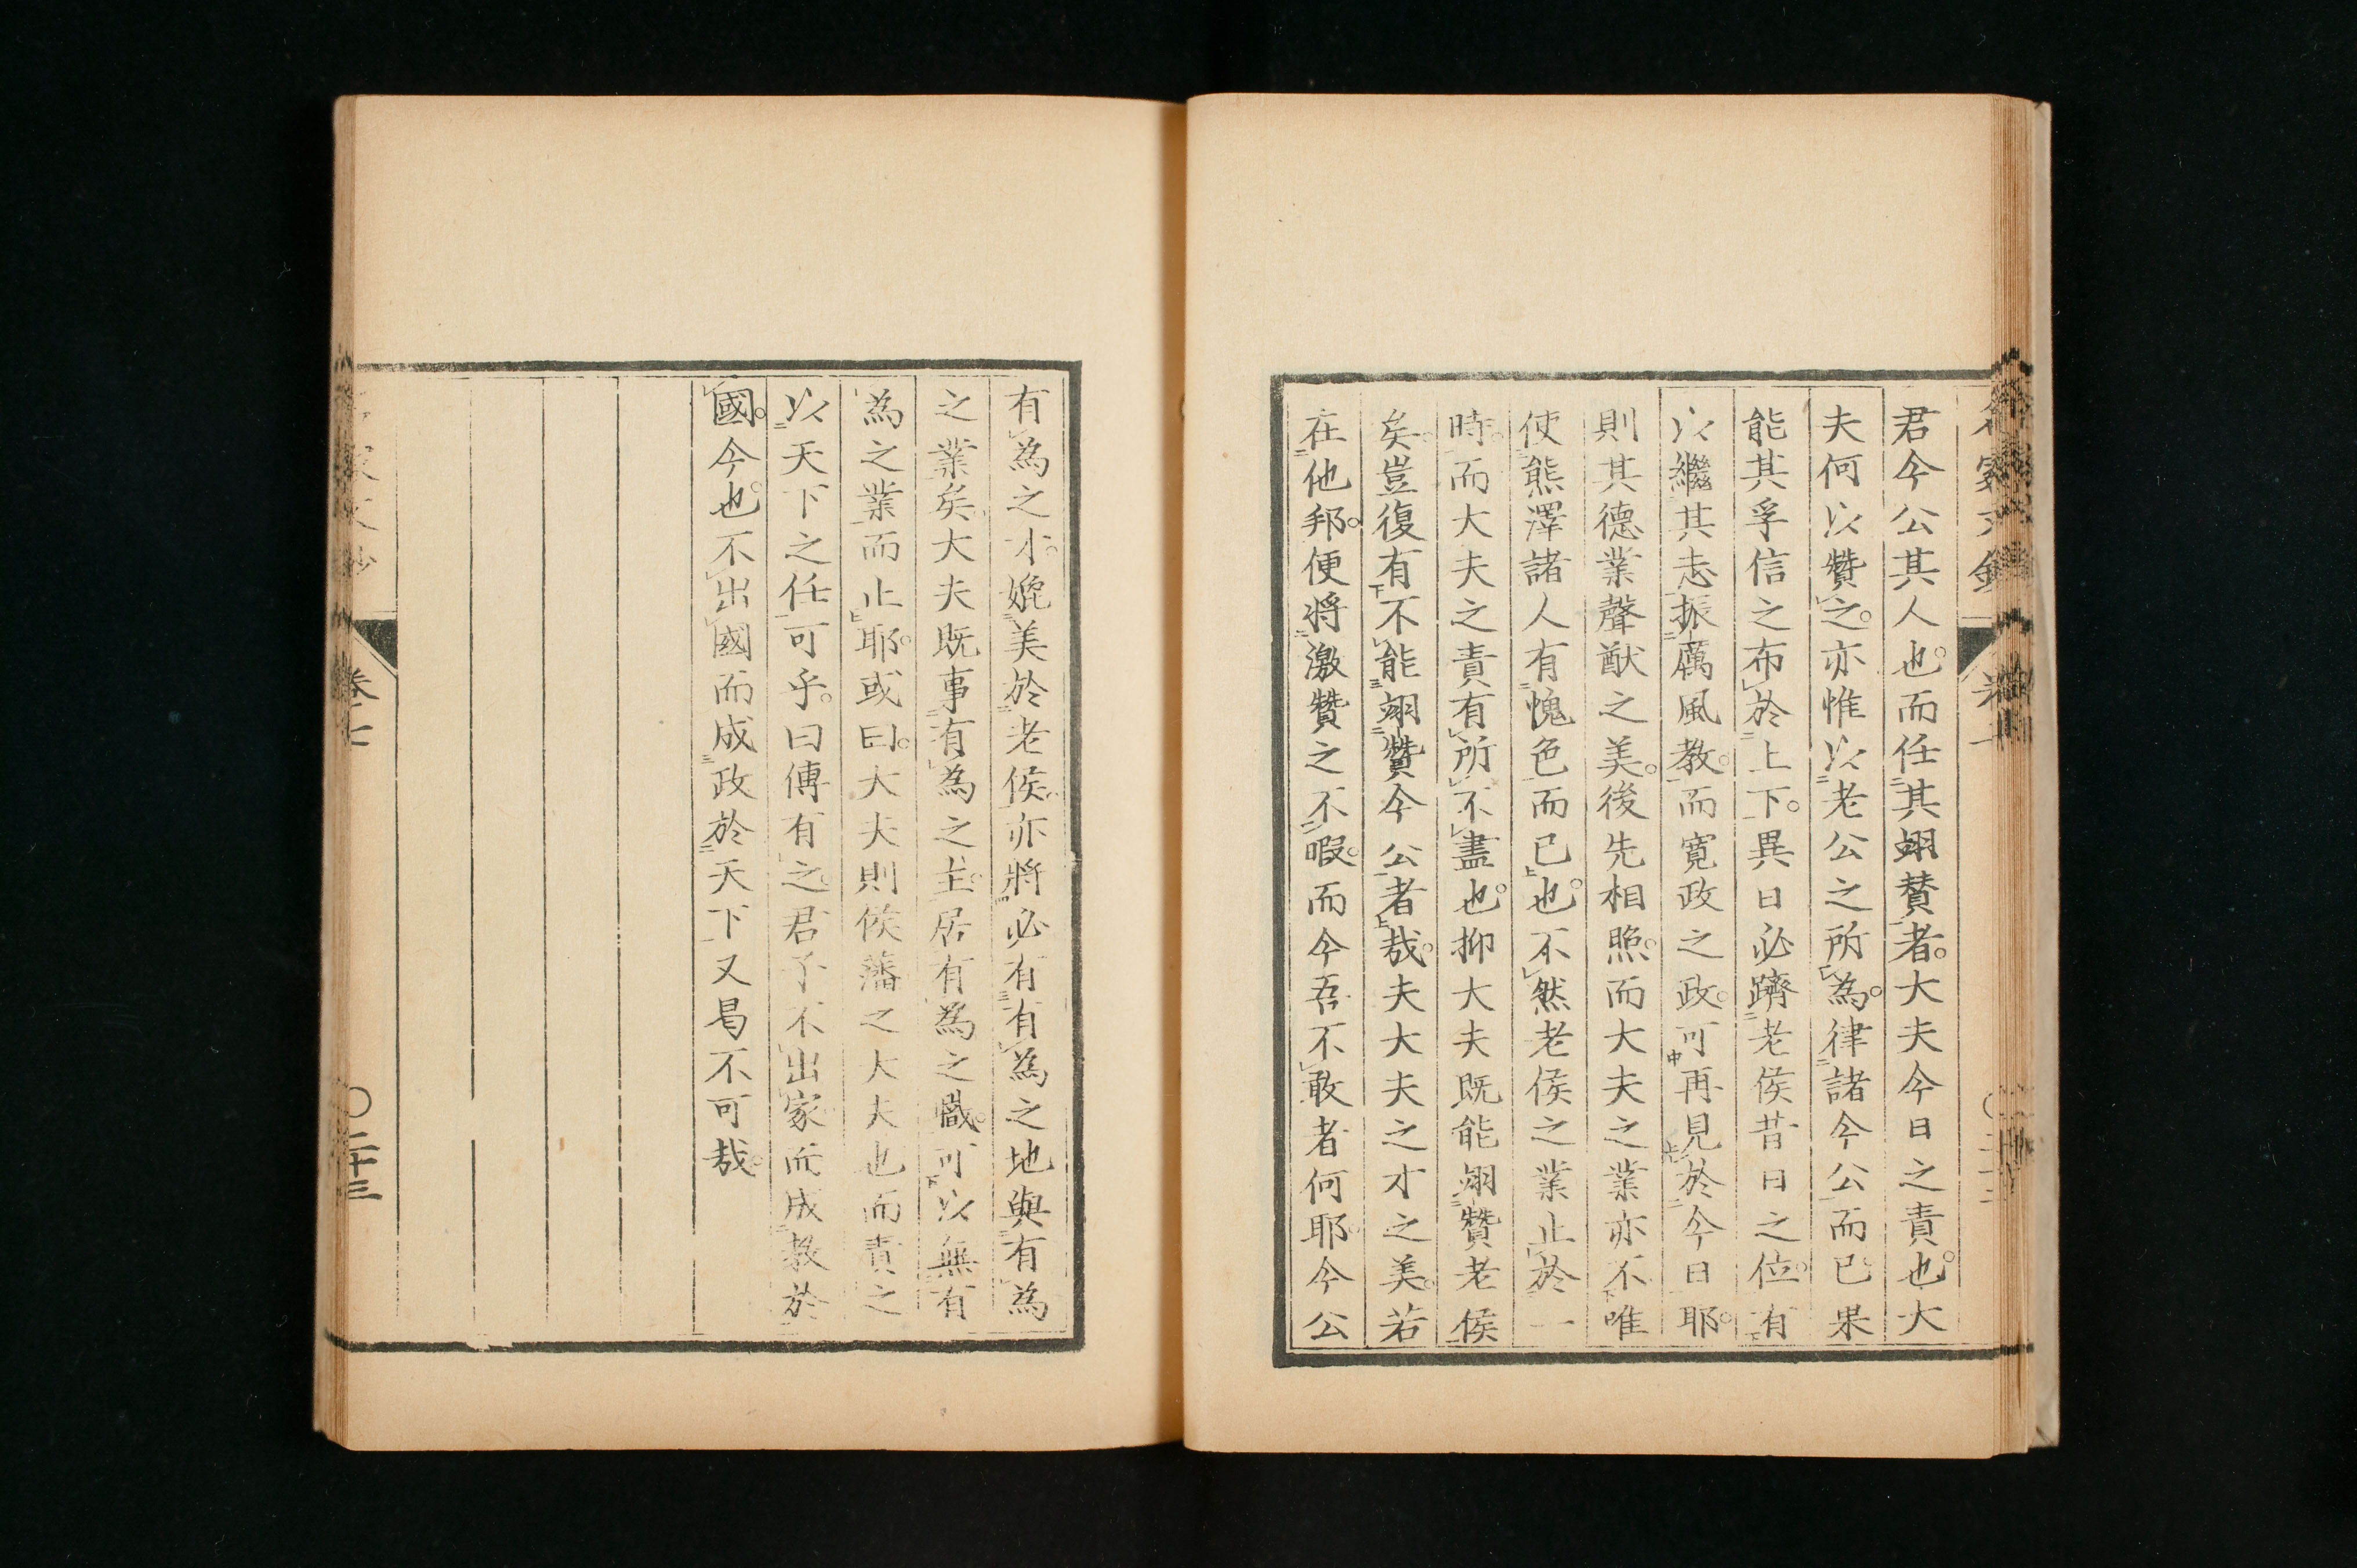 君今公其人也。而任其翊賛者。大夫今日之責也。大
夫何以贊之。亦惟以老公之所為。律諸今公而已果
能其孚信之布於上下。異日必躋老侯昔日之位。有
以繼其志振厲風教。而寛政之政。可再見於今日耶。
則其德業聲猷之美。後先相照。而大夫之業亦不唯
使熊澤諸人有愧色而已也。不然老侯之業止於一
時。而大夫之責有所不盡也。抑大夫既能翊贊老侯
矣。豈復有不能翊贊今公者哉。夫大夫之才之美。若
在他邦。便將激贊之不暇。而今吾不敢者何耶。今公
有為之才。娩美於老侯。亦將必有有為之地與有為
之業矣。大夫既事有為之主。居有為之職。可以無有
為之業而止耶。或曰。大夫則侯藩之大夫也而責之
以天下之任可乎。曰傳有之。君子不出家而成教於
國。今也。不出國而成政於天下又曷不可哉。
卷七
〇二十三